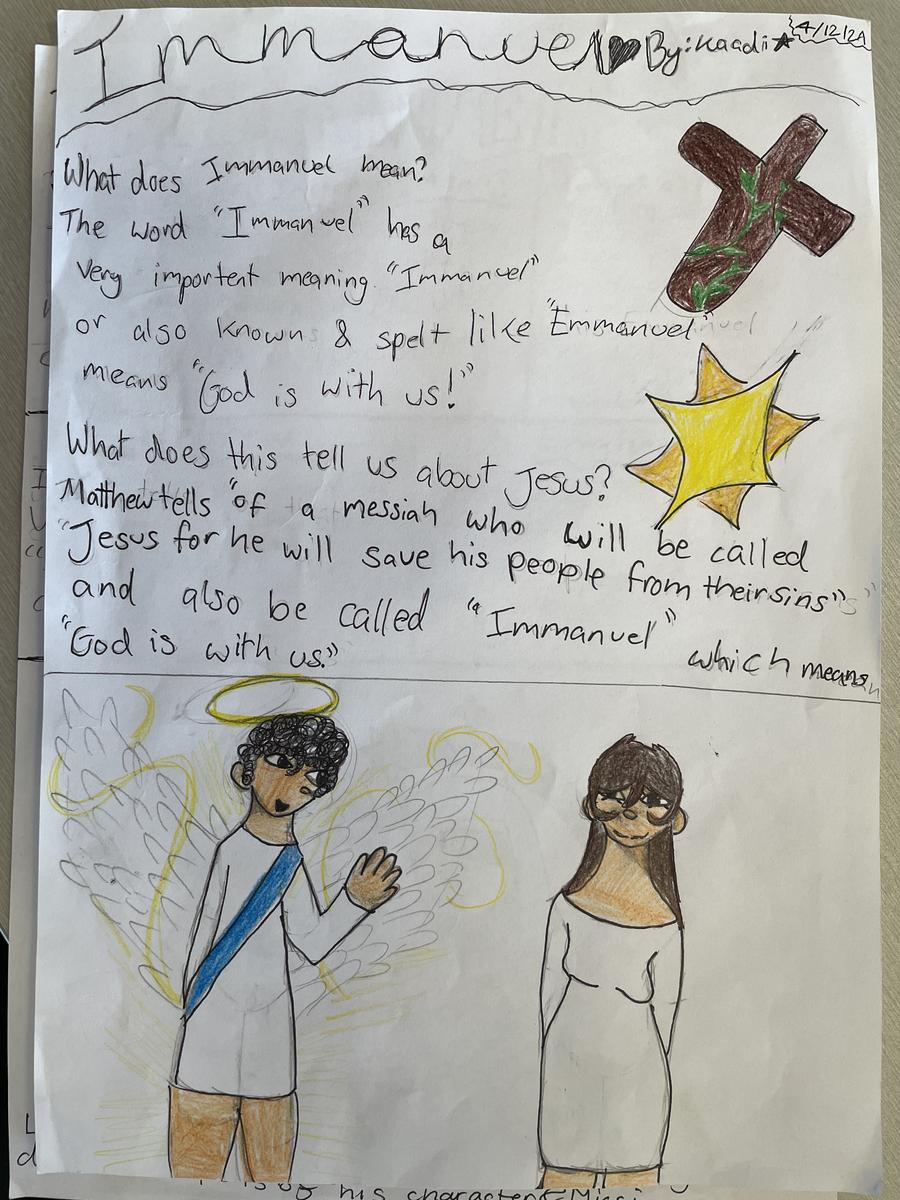 Immanuel By: Kaadi 4/12/24
What does Immanuel mean?
The word "Immanuel" has a
very importent meaning. "Immanuel"
or also known & spelt like "Emmanuel"
means "God is with us!"
What does this tell us about Jesus?
Matthew tells "of a messiah who will be called
"Jesus for he will save his people from their sins"
and also be called "Immanuel" which means
"God is with us."
his character